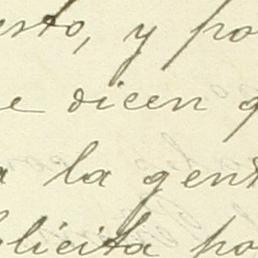 esto, y po
e dicen q
a la gent
felicita po